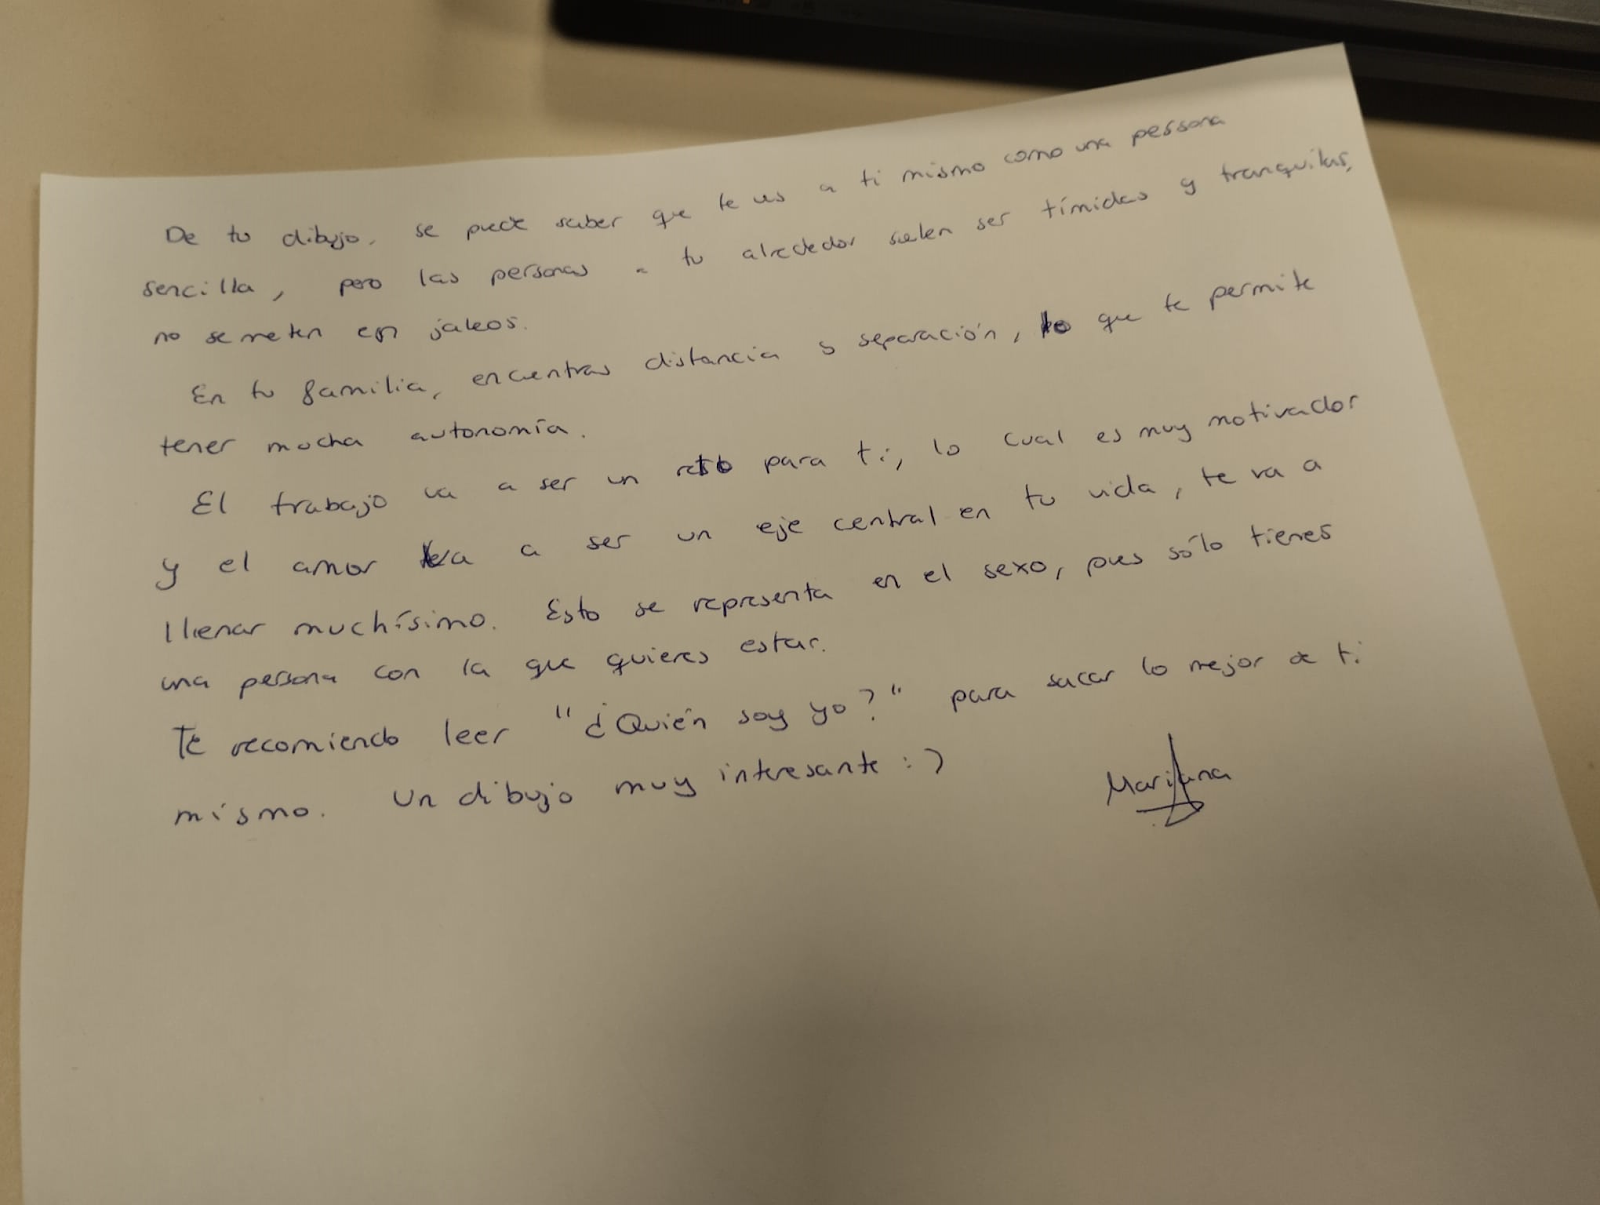 De tu dibujo, se puede saber que te ves a ti mismo como una persona
sencilla, pero las personas a tu alrededor suelen ser tímidas y tranquilas,
no se meten en jaleos.
En tu familia, encuentras distancia y separación, lo que te permite
tener mucha autonomía.
El trabajo va a ser un reto para ti, lo cual es muy motivador
y el amor va a ser un eje central en tu vida, te va a
llenar muchísimo. Esto se representa en el sexo, pues sólo tienes
una persona con la que quieres estar.
Te recomiendo leer "¿Quién soy yo?" para sacar lo mejor de ti
mismo. Un dibujo muy interesante :)
Mariana